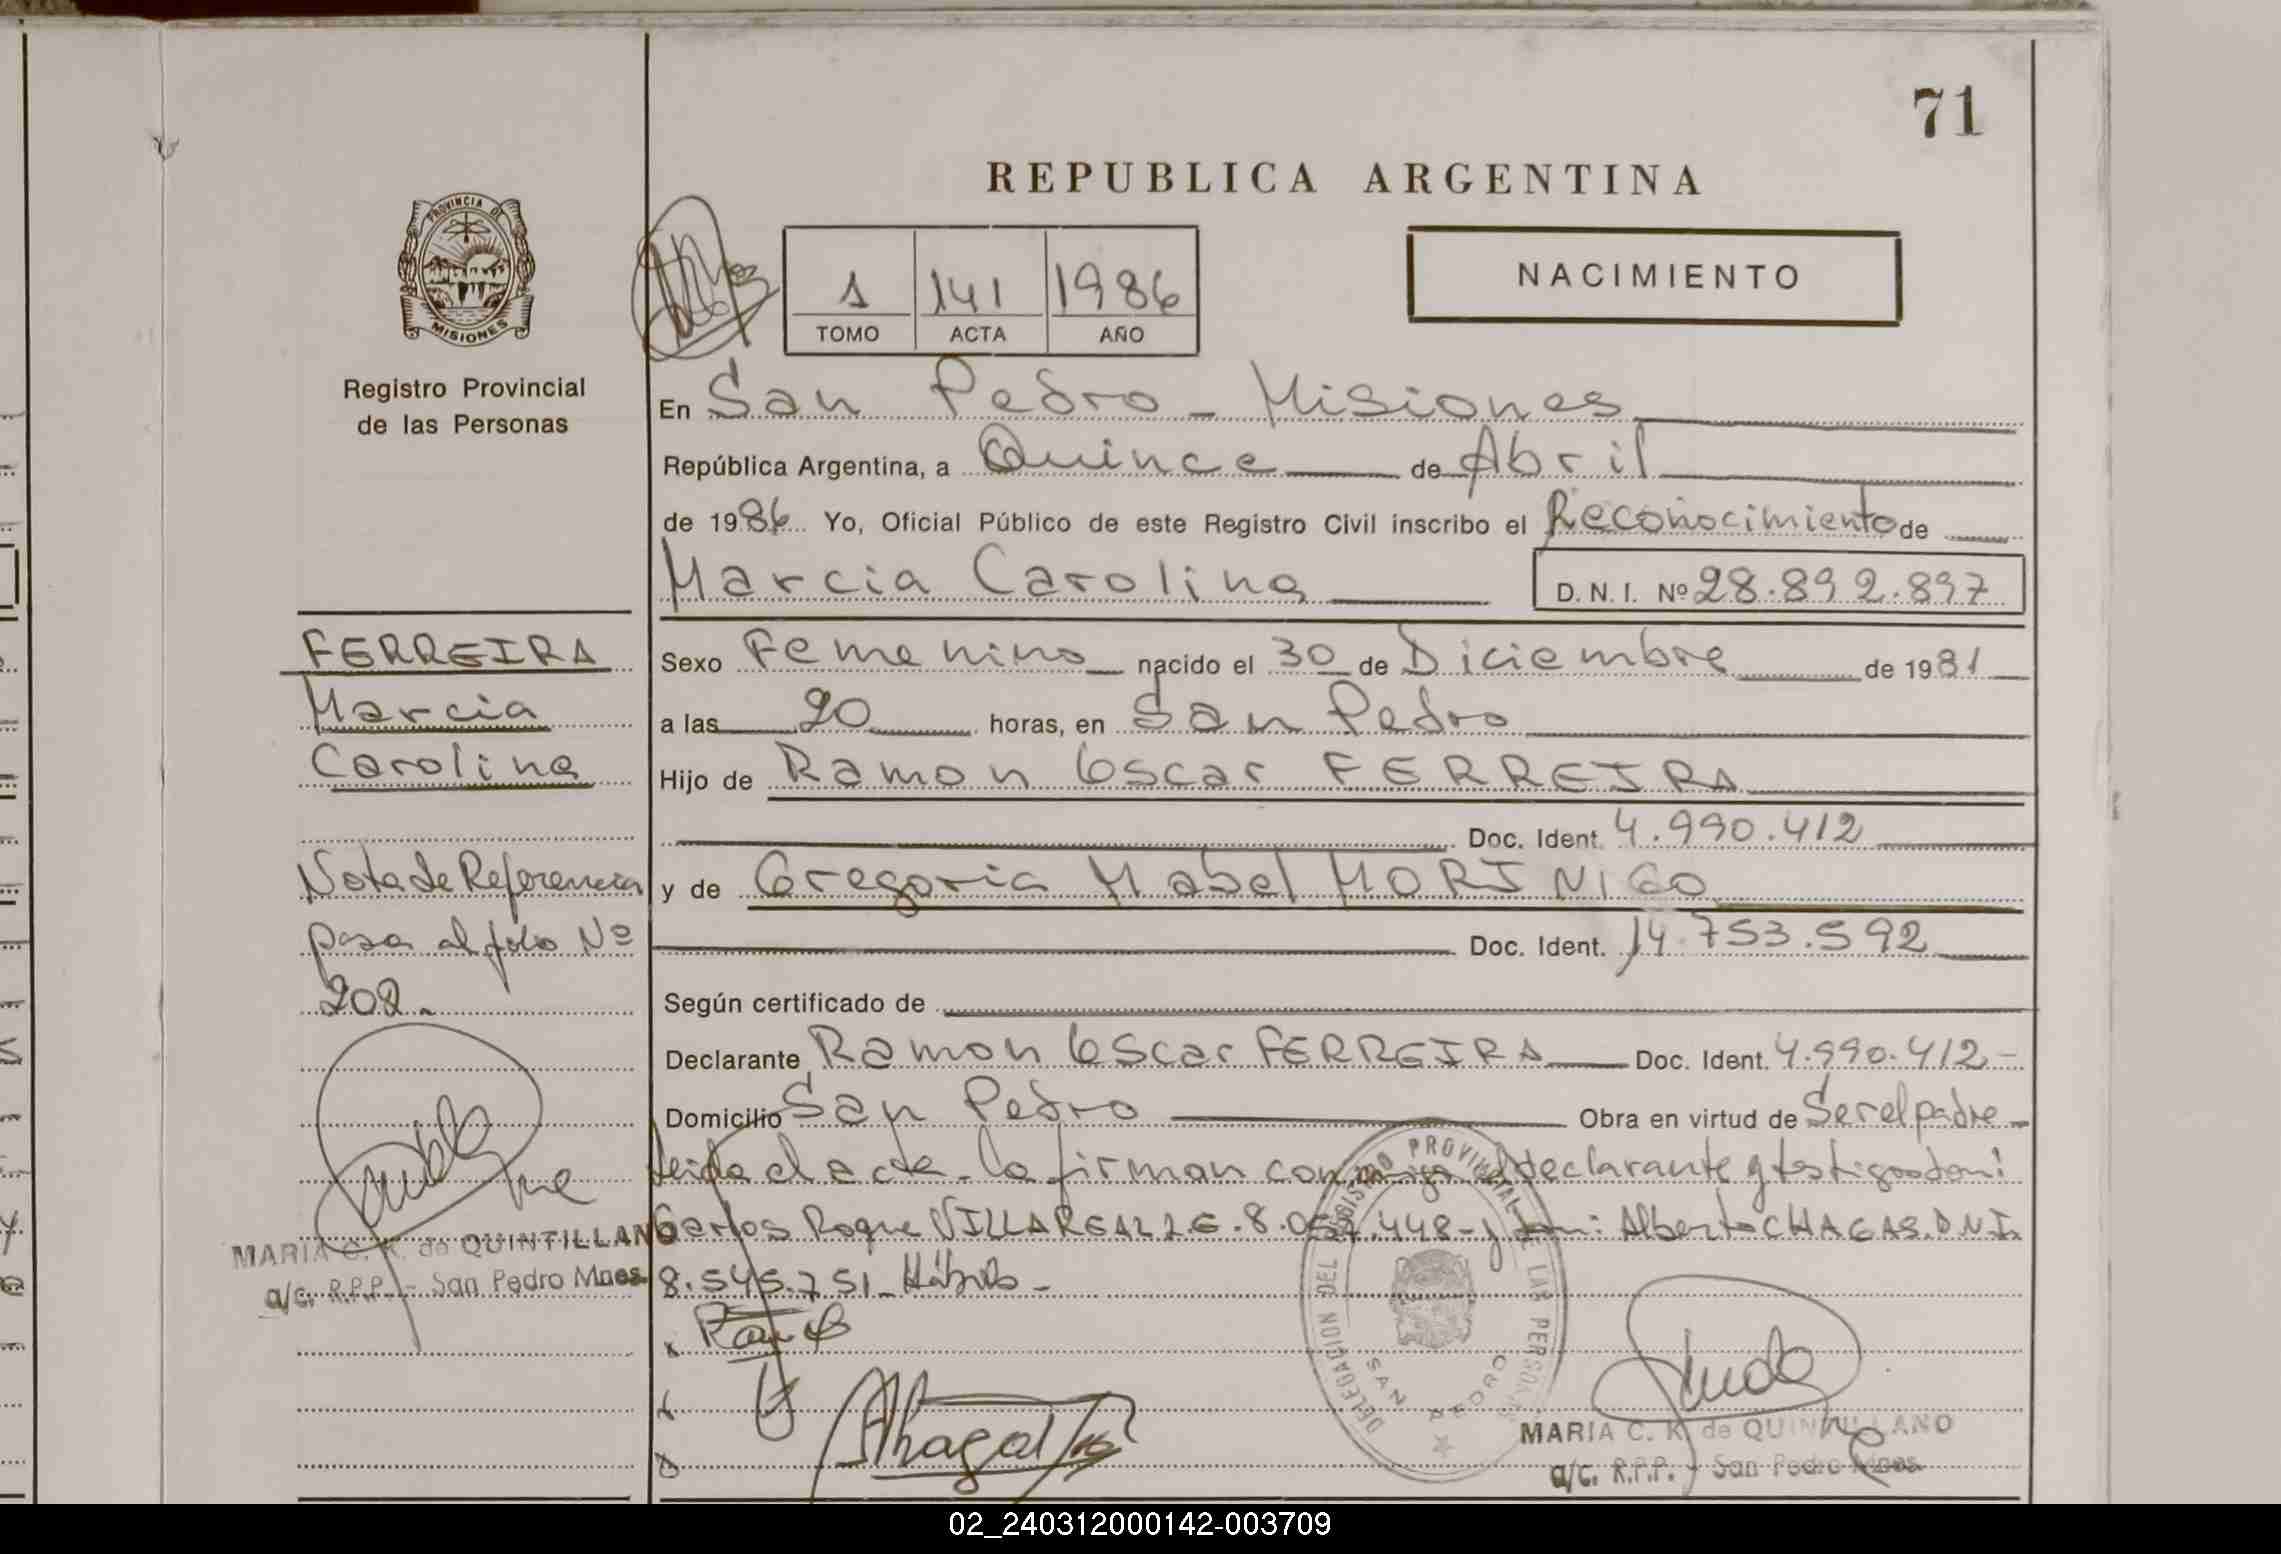 71
REPUBLICA ARGENTINA
PROVINCIA DE
MISIONES
Registro Provincial
de las Personas
1 141 1986
TOMO ACTA AÑO
NACIMIENTO
En San Pedro - Misiones
República Argentina, a Quince de Abril
de 1986 Yo, Oficial Público de este Registro Civil inscribo el Reconocimiento de
Marcia Carolina D. N. I. Nº 28.892.897
FERREIRA
Marcia
Carolina
Nota de Referencia
pasa al folio Nº
202.-
MARIA C. K. de QUINTILLANO
a/c. R.P.P. - San Pedro Mnes.
Sexo Femenino nacido el 30 de Diciembre de 1981
a las 20 horas, en San Pedro
Hijo de Ramon Oscar FERREIRA
Doc. Ident. 4.990.412
y de Gregoria Mabel MORINIGO
Doc. Ident. 14.753.592
Según certificado de
Declarante Ramon Oscar FERREIRA Doc. Ident. 4.990.412-
Domicilio San Pedro Obra en virtud de Ser el padre -
Leida el acta - la firman conmigo el declarante y testigos don:
Carlos Roque VILLAREAL L.E. 8.054.448- y don: Alberto CHAGAS. D.N.I.
8.545.751 - Hábiles -
DELEGACION DEL REGISTRO PROVINCIAL DE LAS PERSONAS
SAN PEDRO
MARIA C. K. de QUINTILLANO
a/c. R.P.P. - San Pedro Mnes.
02_240312000142-003709